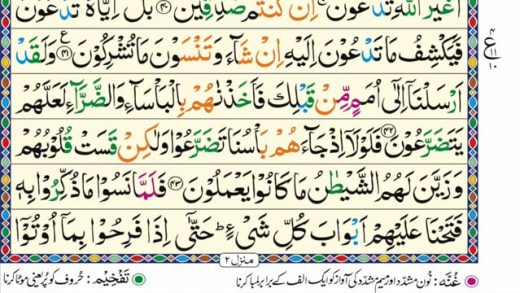 اَغَيۡرَ اللّٰهِ تَدۡعُوۡنَ‌ۚ اِنۡ كُنۡتُمۡ صٰدِقِيۡنَ ﴿۴۰﴾ بَلۡ اِيَّاهُ تَدۡعُوۡنَ
فَيَكۡشِفُ مَا تَدۡعُوۡنَ اِلَيۡهِ اِنۡ شَآءَ وَتَنۡسَوۡنَ مَا تُشۡرِكُوۡنَ ﴿۴۱﴾ وَلَقَدۡ
اَرۡسَلۡنَاۤ اِلٰٓى اُمَمٍ مِّنۡ قَبۡلِكَ فَاَخَذۡنٰهُمۡ بِالۡبَاۡسَآءِ وَالضَّرَّآءِ لَعَلَّهُمۡ
يَتَضَرَّعُوۡنَ ﴿۴۲﴾ فَلَوۡلَاۤ اِذۡ جَآءَهُمۡ بَاۡسُنَا تَضَرَّعُوۡا وَلٰـكِنۡ قَسَتۡ قُلُوۡبُهُمۡ
وَزَيَّنَ لَهُمُ الشَّيۡطٰنُ مَا كَانُوۡا يَعۡمَلُوۡنَ ﴿۴۳﴾ فَلَمَّا نَسُوۡا مَا ذُكِّرُوۡا بِهٖ
فَتَحۡنَا عَلَيۡهِمۡ اَبۡوَابَ كُلِّ شَىۡءٍ ؕ حَتّٰٓى اِذَا فَرِحُوۡا بِمَاۤ اُوۡتُوۡۤا
منزل ۲
غُنَّه: نُون مشدّد اور مِیم مشدّد کی آواز کو ایک الف کے برابر لمبا کرنا
تَفۡخِيۡم: حُروف کو پُر یعنی موٹا کرنا